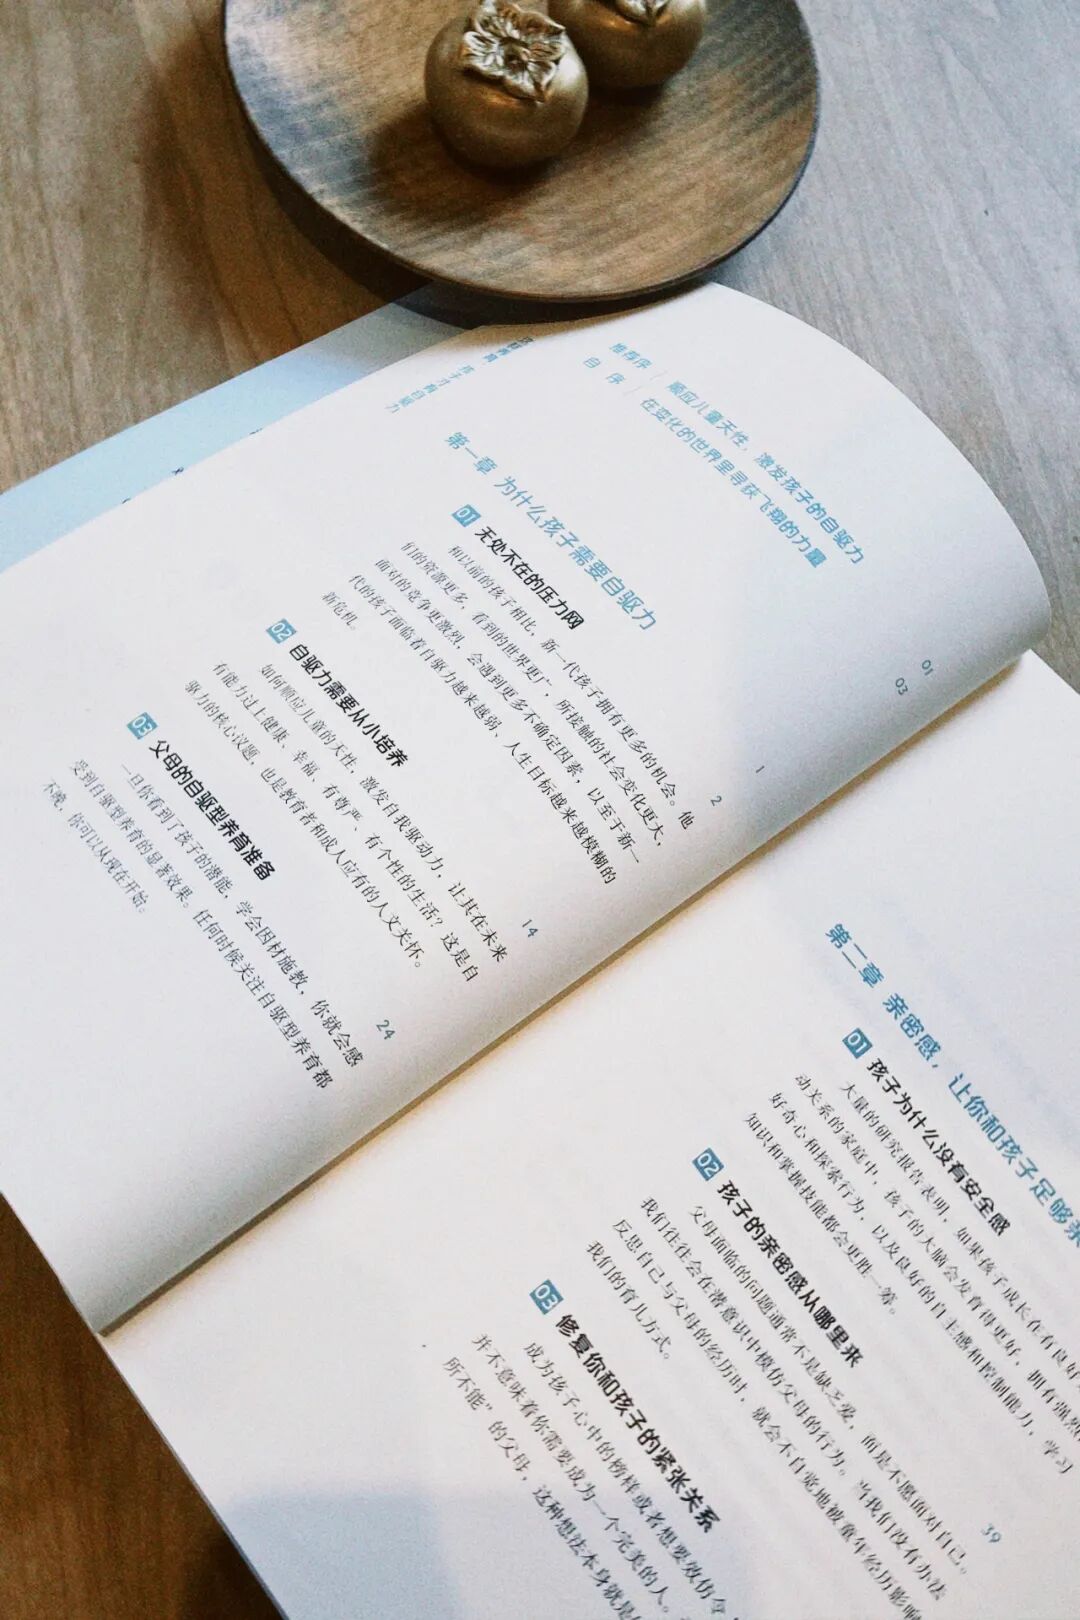 孩子才有自驱力
推荐序 顺应儿童天性，激发孩子的自驱力 01
自序 在变化的世界里寻获飞翔的力量 03
第一章 为什么孩子需要自驱力 1
01 无处不在的压力网 2
和以前的孩子相比，新一代孩子拥有更多的机会。他
们的资源更多，看到的世界更广，所接触的社会变化更大，
面对的竞争更激烈，会遇到更多不确定因素，以至于新一
代的孩子面临着自驱力越来越弱、人生目标越来越模糊的
新危机。
02 自驱力需要从小培养 14
如何顺应儿童的天性，激发自我驱动力，让其在未来
有能力过上健康、幸福、有尊严、有个性的生活？这是自
驱力的核心议题，也是教育者和成人应有的人文关怀。
03 父母的自驱型养育准备 24
一旦你看到了孩子的潜能，学会因材施教，你就会感
受到自驱型养育的显著效果。任何时候关注自驱型养育都
不晚，你可以从现在开始。
第二章 亲密感，让你和孩子足够亲
01 孩子为什么没有安全感
大量的研究报告表明，如果孩子成长在有良好
动关系的家庭中，孩子的大脑会发育得更好，拥有强烈
好奇心和探索行为，以及良好的自主感和控制能力，学习
知识和掌握技能都会更胜一筹。
02 孩子的亲密感从哪里来 39
父母面临的问题通常不是缺乏爱，而是不愿面对自己。
我们往往会在潜意识中模仿父母的行为。当我们没有办法
反思自己与父母的经历时，就会不自觉地被童年经历影响
我们的育儿方式。
03 修复你和孩子的紧张关系
成为孩子心中的榜样或者想要效仿
并不意味着你需要成为一个完美的人。
所不能”的父母，这种想法本身就是